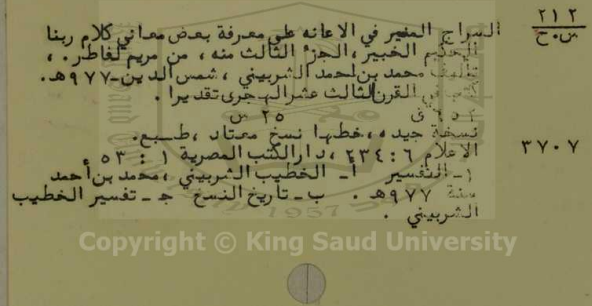 ٢١٢
س.خ
السراج المنير في الاعانه على معرفة بعض معاني كلام ربنا
الحكيم الخبير ،الجزء الثالث منه ، من مريم لفاطر . ،
تأليف محمد بن احمد الشربيني ، شمس الدين -٩٧٧هـ.
كتب في القرن الثالث عشر الهجرى تقديرا .
ق ٢٥ س
نسخة جيده ، خطها نسخ معتاد ، طبع .
٣٧٠٧
الاعلام ٦ : ٢٣٤ ، دار الكتب المصرية ١ : ٥٣
١- التفسير أ- الخطيب الشربيني ،محمد بن أحمد
سنة ٩٧٧هـ . ب- تاريخ النسخ ج- تفسير الخطيب
الشربيني .
1957
Copyright © King Saud University